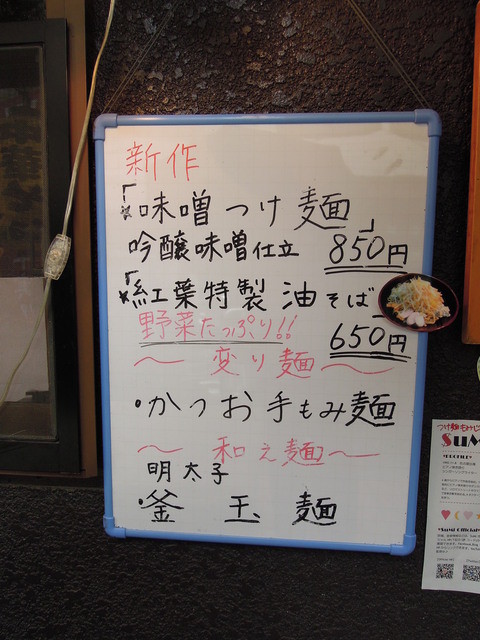 新作
「味噌つけ麺」
吟醸味噌仕立 850円
「紅葉特製油そば
野菜たっぷり!! 650円
〜変り麺〜
・かつお手もみ麺
〜和え麺〜
明太子
釜玉麺